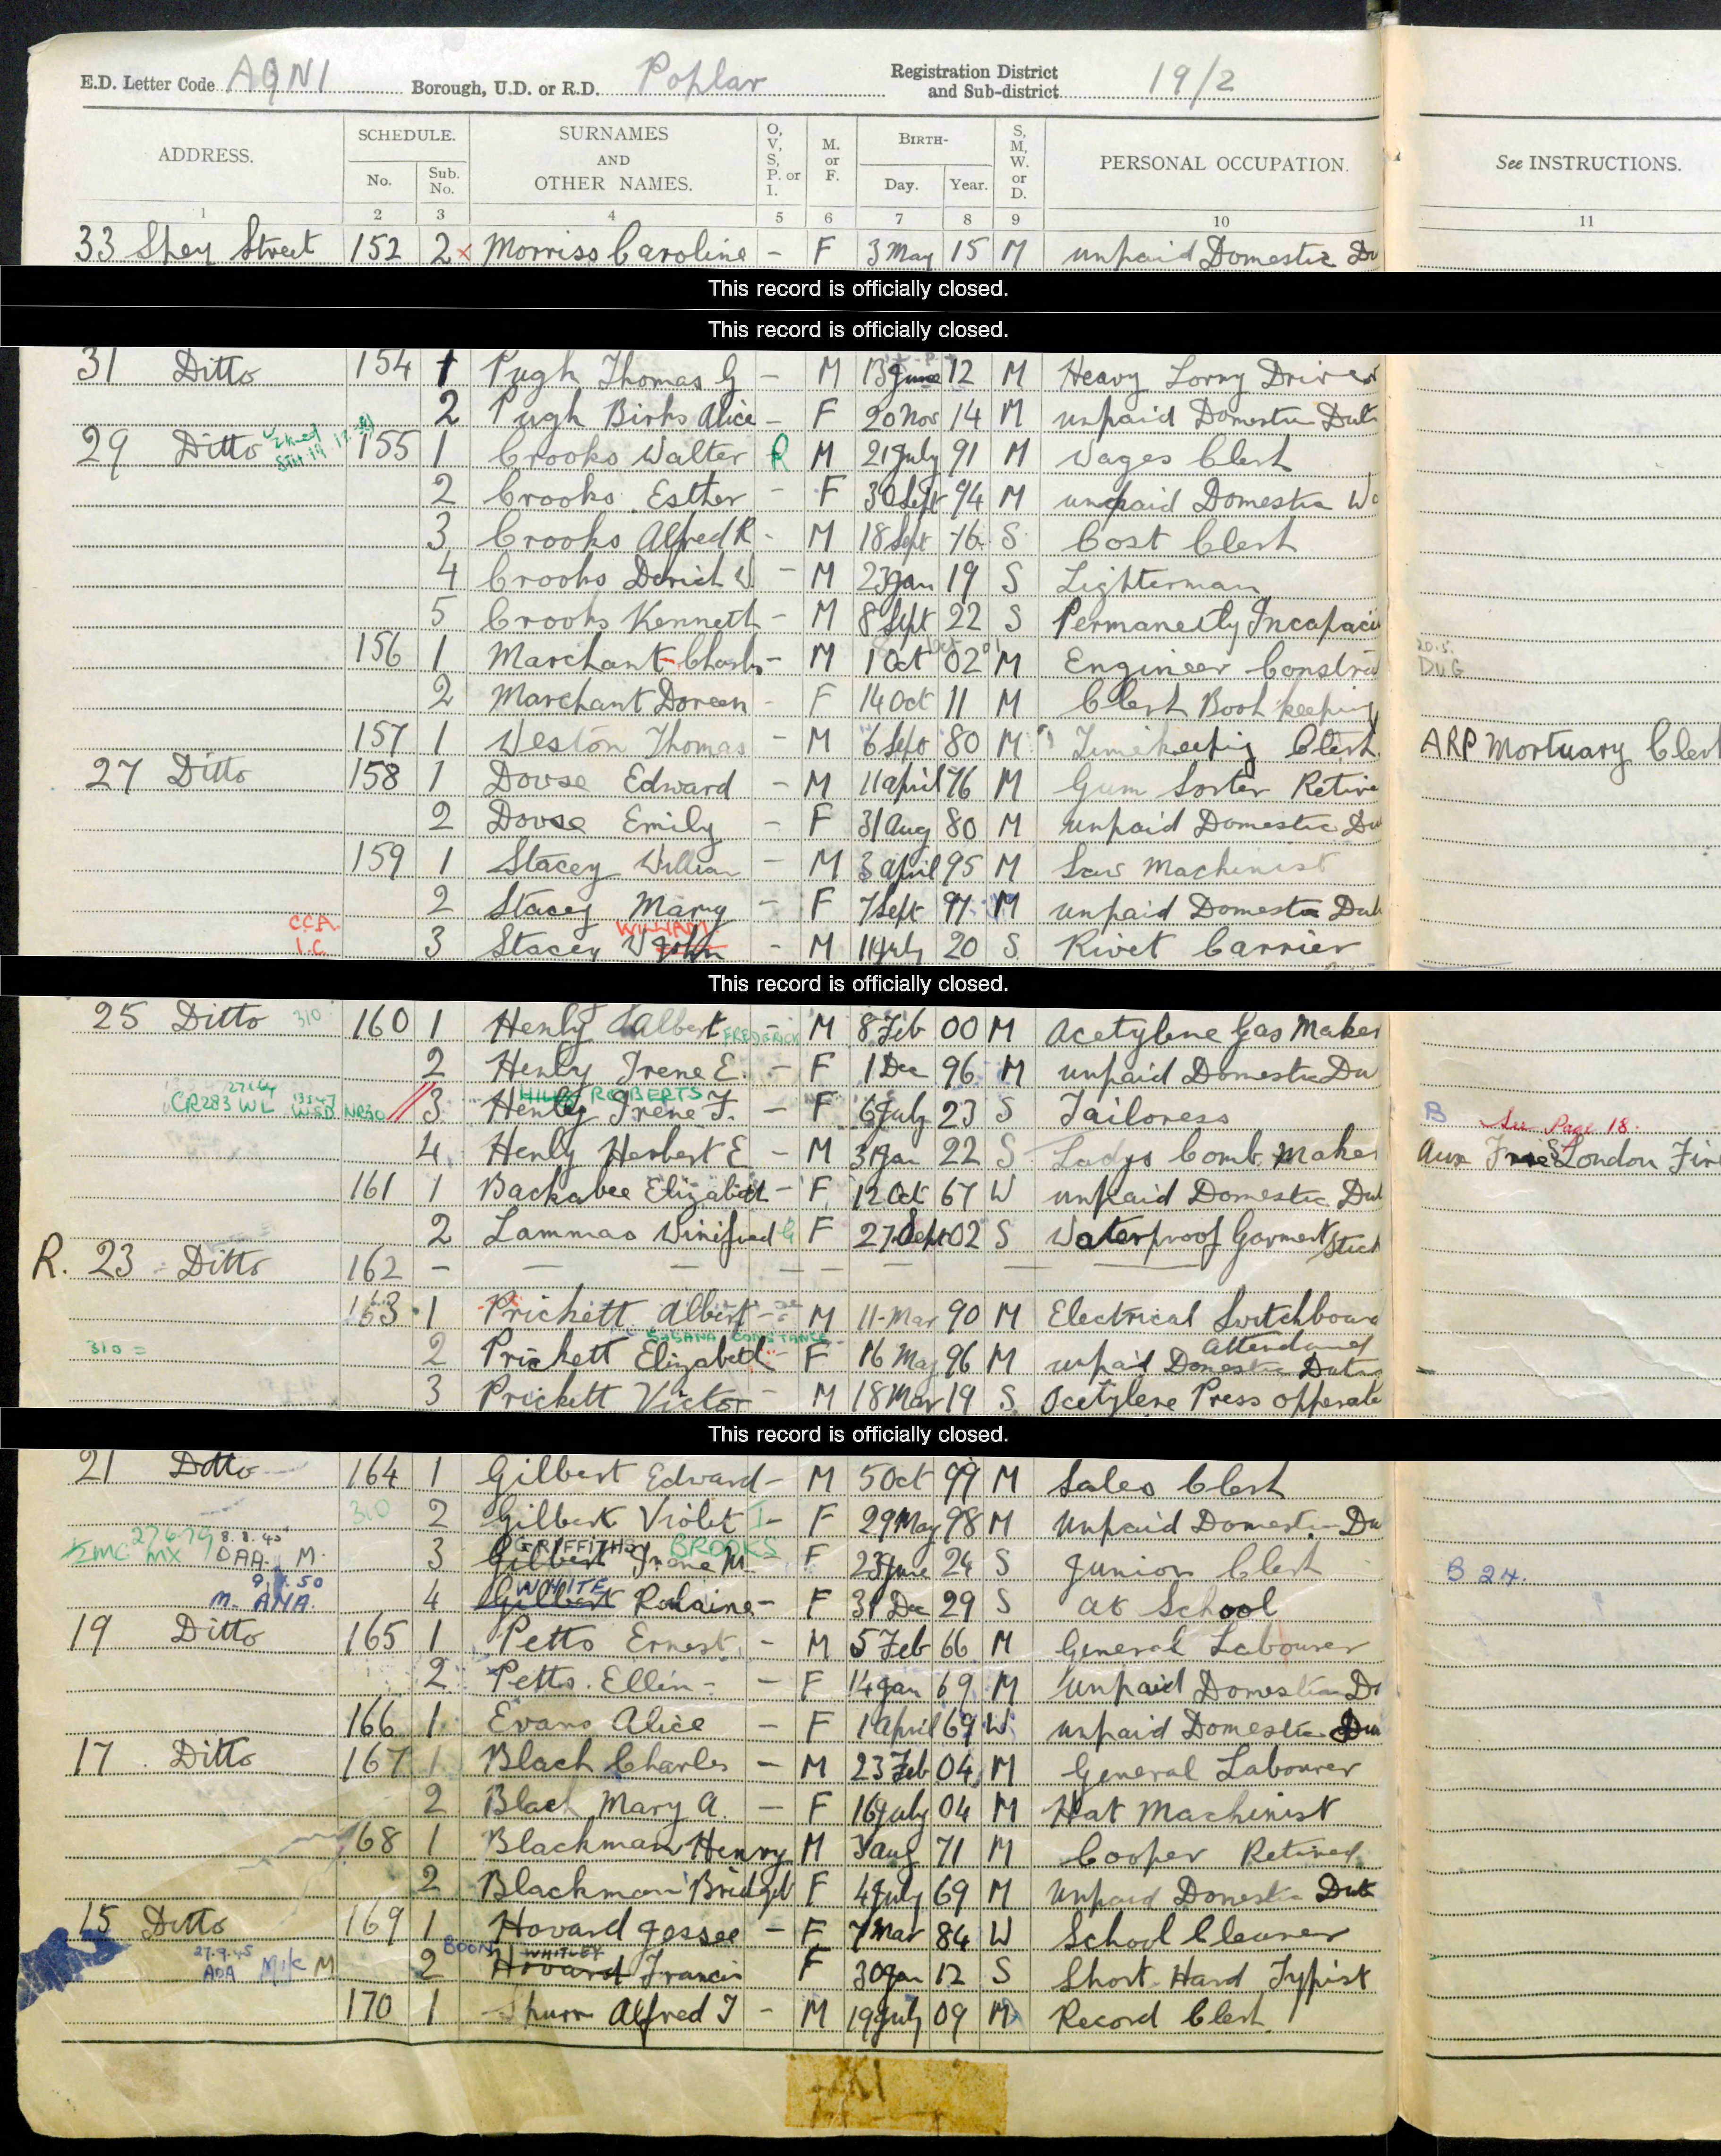 E.D. Letter Code AQNI Borough, U.D. or R.D. Poplar Registration District and Sub-district 19/2
ADDRESS. SCHEDULE. No. Sub. No. SURNAMES AND OTHER NAMES. O, V, S, P. or I. M. or F. BIRTH- Day. Year. S, M, W. or D. PERSONAL OCCUPATION. See INSTRUCTIONS.
1 2 3 4 5 6 7 8 9 10 11
33 Spey Street 152 2 x Morriss Caroline - F 3 May 15 M unpaid Domestic Du
This record is officially closed.
This record is officially closed.
31 Ditto 154 1 Pugh Thomas G - M 13 June 12 M Heavy Lorry Driver
2 Pugh Birks Alice - F 20 Nov 14 M unpaid Domestic Duti
29 Ditto 155 1 Crooks Walter R M 21 July 91 M Wages Clerk
2 Crooks Esther - F 30 Sept 94 M unpaid Domestic
3 Crooks Alfred R - M 18 Sept 16 S Cost Clerk
4 Crooks Derick W - M 23 Jan 19 S Lighterman
5 Crooks Kenneth - M 8 Sept 22 S Permanently Incapaci
156 1 Marchant Charles - M 1 Oct 02 M Engineer Constru DUG
2 Marchant Doreen - F 14 Oct 11 M Clerk Book keeping
157 1 Weston Thomas - M 6 Sept 80 M Timekeeping Clerk ARP Mortuary Clerk
27 Ditto 158 1 Dovse Edward - M 11 April 76 M Gum Sorter Retire
2 Dovse Emily - F 31 Aug 80 M unpaid Domestic Du
159 1 Stacey William - M 3 April 95 M Saw Machinist
2 Stacey Mary - F 7 Sept 97 M unpaid Domestic Dut
C.C.A. I.C. WILLIAM
3 Stacey John - M 11 July 20 S Rivet Carrier
This record is officially closed.
25 Ditto 310 160 1 Henly Albert FREDERICK - M 8 Feb 00 M Acetylene Gas Maker
2 Henly Irene E. - F 1 Dec 96 M unpaid Domestic Du
CR283 WL NR30 // HILLS ROBERTS
3 Henly Irene F. - F 6 July 23 S Tailoress B See Page 18.
4 Henly Herbert E - M 31 Jan 22 S Ladys Comb Maker Aux Fire S London Fir
161 1 Backabee Elizabeth - F 12 Oct 67 W unpaid Domestic Dut
2 Lammas Winifred G F 27 Sept 02 S Waterproof Garment Stitch
R. 23 Ditto 162 - — — — — — — —
163 1 Prickett Albert - M 11 Mar 90 M Electrical Switchboard
SUSANA CONSTANCE Attendant
310 = 2 Prickett Elizabeth - F 16 May 96 M unpaid Domestic Duties
3 Prickett Victor - M 18 Mar 19 S Acetylene Press opperate
This record is officially closed.
21 Ditto 164 1 Gilbert Edward - M 5 Oct 99 M Sales Clerk
310 2 Gilbert Violet I - F 29 May 98 M Unpaid Domestic Du
27679 8.8.45 MX OAA. M. GRIFFITHS BROOKS
3 Gilbert Irene M - F 23 June 24 S Junior Clerk B 24.
M. ANA. WHITE
4 Gilbert Rolaine - F 31 Dec 29 S at School
19 Ditto 165 1 Petts Ernest - M 5 Feb 66 M General Labourer
2 Petts Ellen - F 14 Jan 69 M Unpaid Domestic Du
166 1 Evans Alice - F 1 April 69 W unpaid Domestic Du
17 Ditto 167 1 Black Charles - M 23 Feb 04 M General Labourer
2 Black Mary A. - F 16 July 04 M Hat Machinist
168 1 Blackman Henry M 3 Aug 71 M Cooper Retired
2 Blackman Bridget F 4 July 69 M Unpaid Domestic Dut
15 Ditto 169 1 Hovard Jessee - F 7 Mar 84 W School Cleaner
27.9.45 AOA M BOON WHITLEY
2 Hovard Francis F 30 Jan 12 S Short Hand Typist
170 1 Spurr Alfred J - M 19 July 09 M Record Clerk